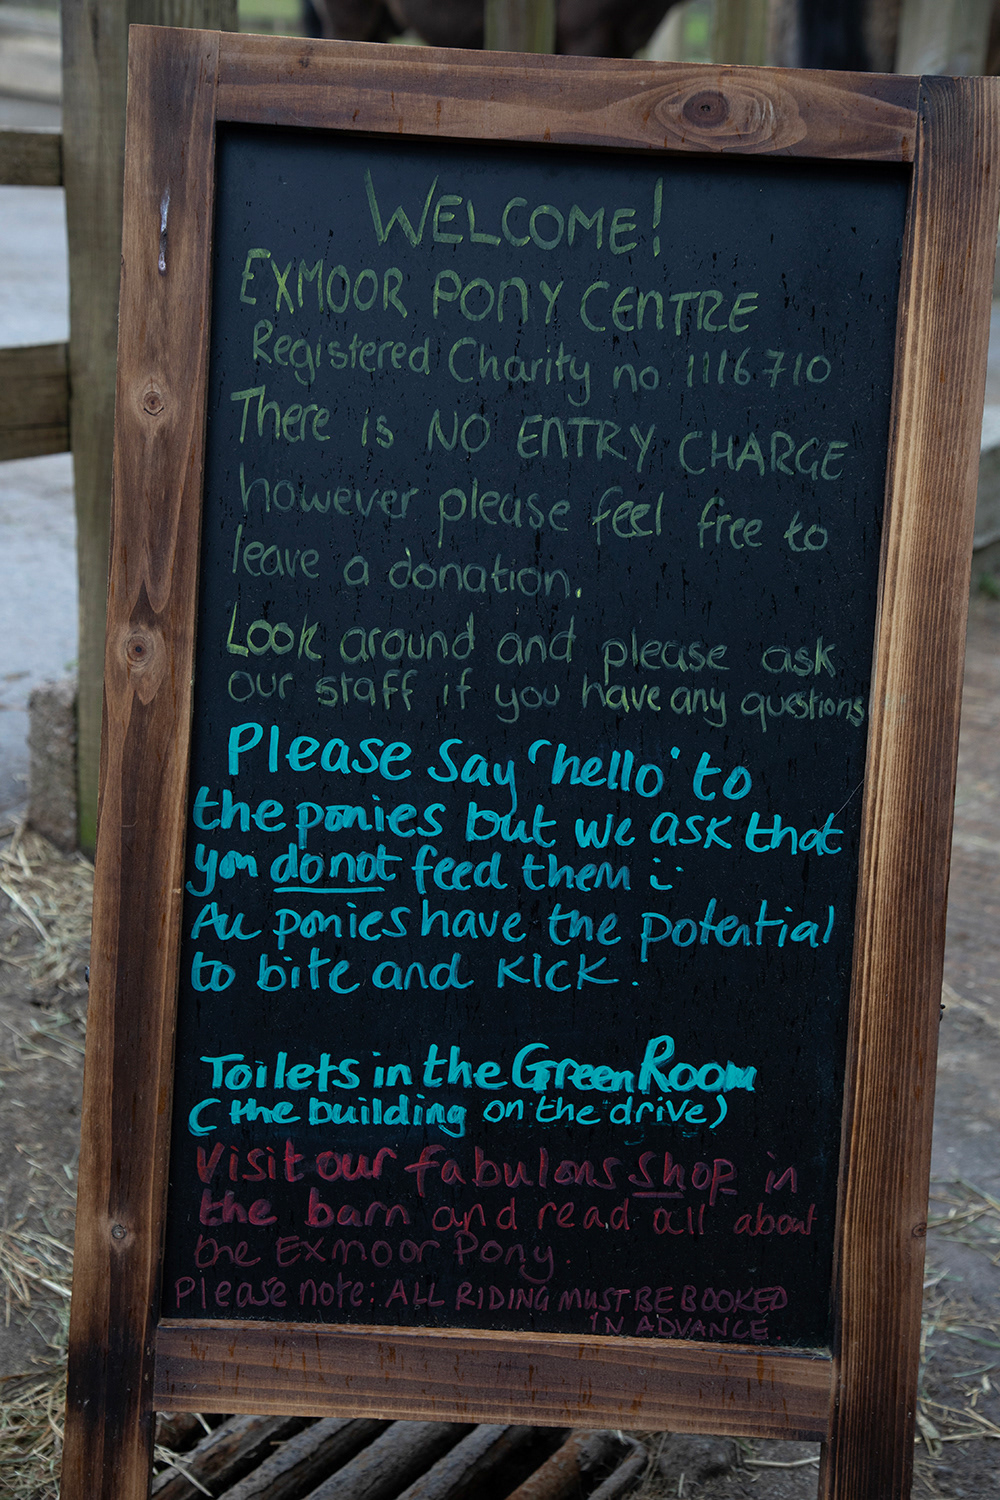 WELCOME!
EXMOOR PONY CENTRE
Registered Charity no 1116710
There is NO ENTRY CHARGE
however please feel free to
leave a donation.
Look around and please ask
our staff if you have any questions
Please say 'hello' to
the ponies but we ask that
you do not feed them :)
All ponies have the potential
to bite and KICK.
Toilets in the Green Room
(the building on the drive)
Visit our fabulous shop in
the barn and read all about
the Exmoor Pony.
Please note: ALL RIDING MUST BE BOOKED
IN ADVANCE.